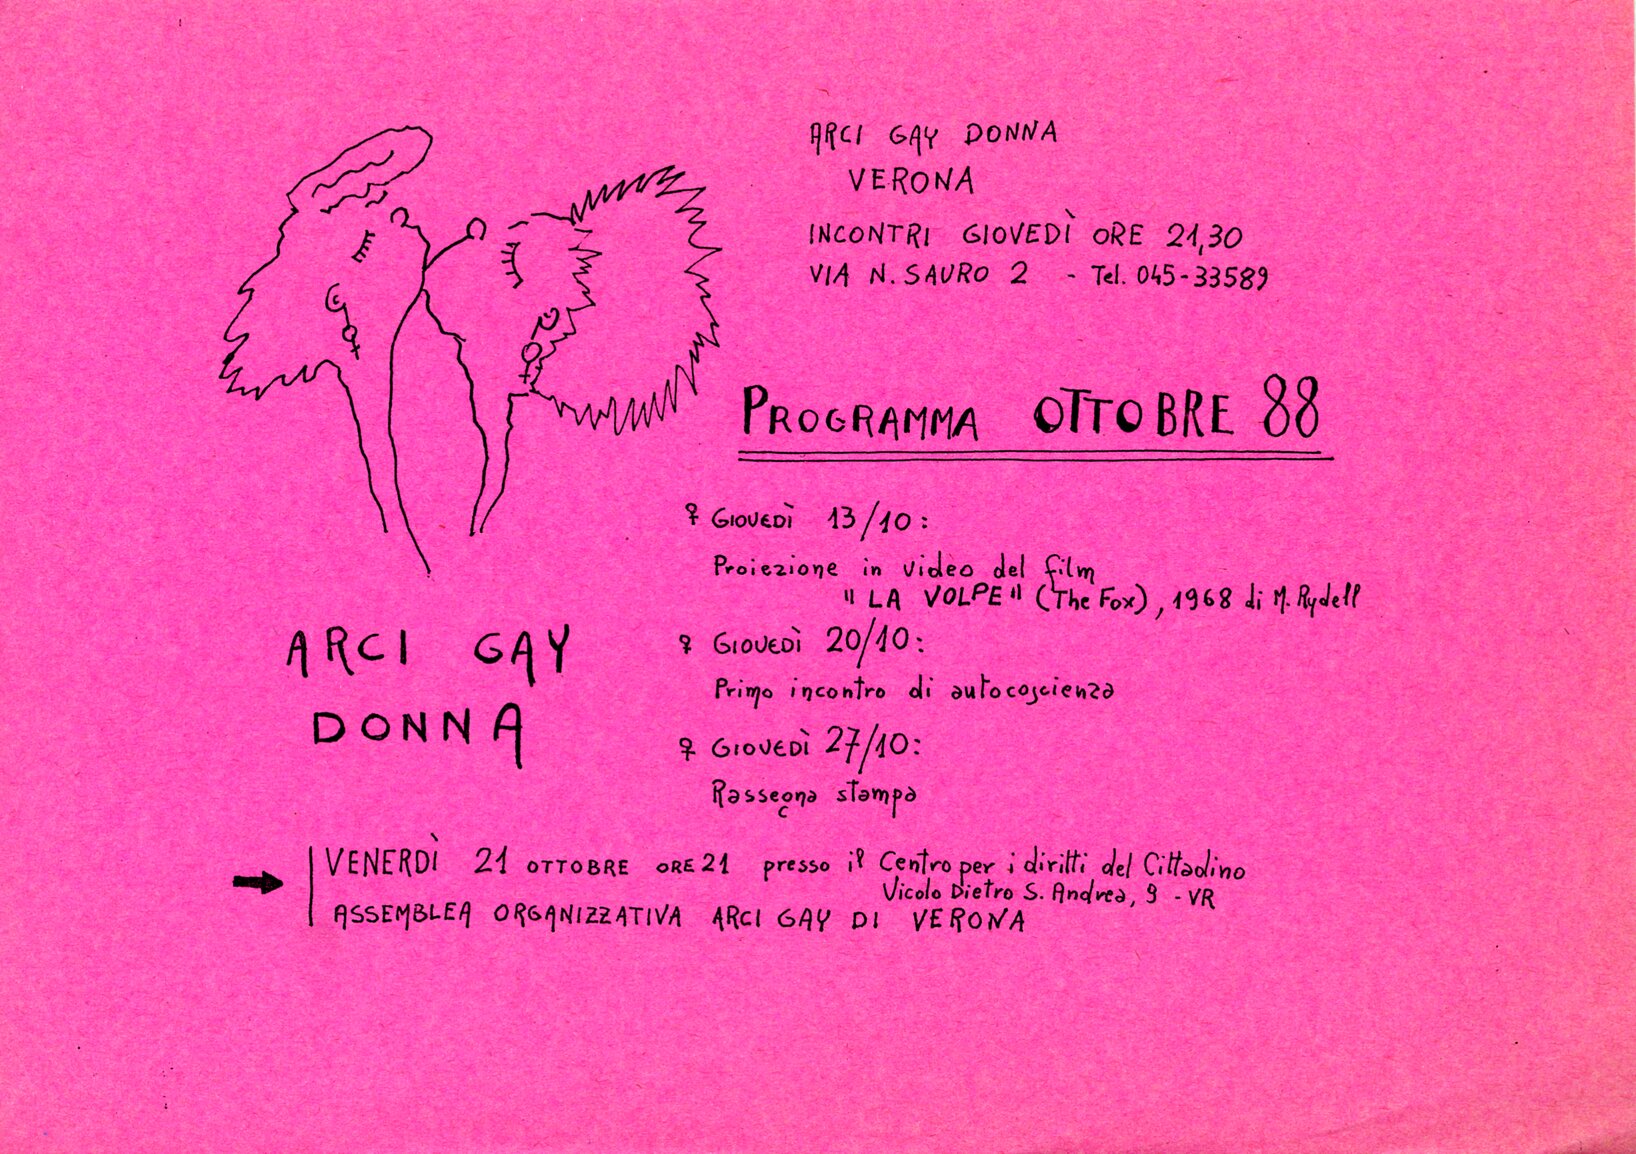 ARCI GAY DONNA
VERONA
INCONTRI GIOVEDÌ ORE 21,30
VIA N. SAURO 2 - Tel. 045-33589
PROGRAMMA OTTOBRE 88
♀ GIOVEDÌ 13/10:
Proiezione in video del film
"LA VOLPE" (The Fox), 1968 di M. Rydell
♀ GIOVEDÌ 20/10:
Primo incontro di autocoscienza
♀ GIOVEDÌ 27/10:
Rassegna stampa
ARCI GAY
DONNA
VENERDÌ 21 OTTOBRE ORE 21 presso il Centro per i diritti del Cittadino
Vicolo Dietro S. Andrea, 9 - VR
ASSEMBLEA ORGANIZZATIVA ARCI GAY DI VERONA